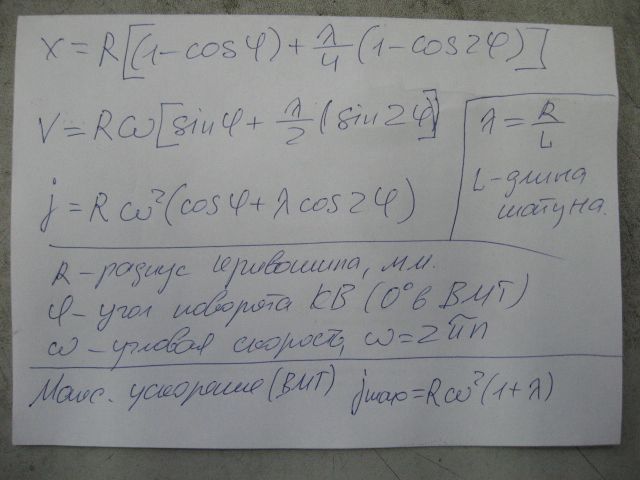 x = R[(1-cosφ) + λ/4 (1-cos2φ)]
V = Rω[sinφ + λ/2 (sin2φ)]
λ = R/L
L - длина
шатуна.
j = Rω²(cosφ + λcos2φ)
R - радиус кривошипа, мм.
φ - угол поворота КВ (0° в ВМТ)
ω - угловая скорость, ω = 2πn
Макс. ускорение (ВМТ) jmax = Rω²(1 + λ)